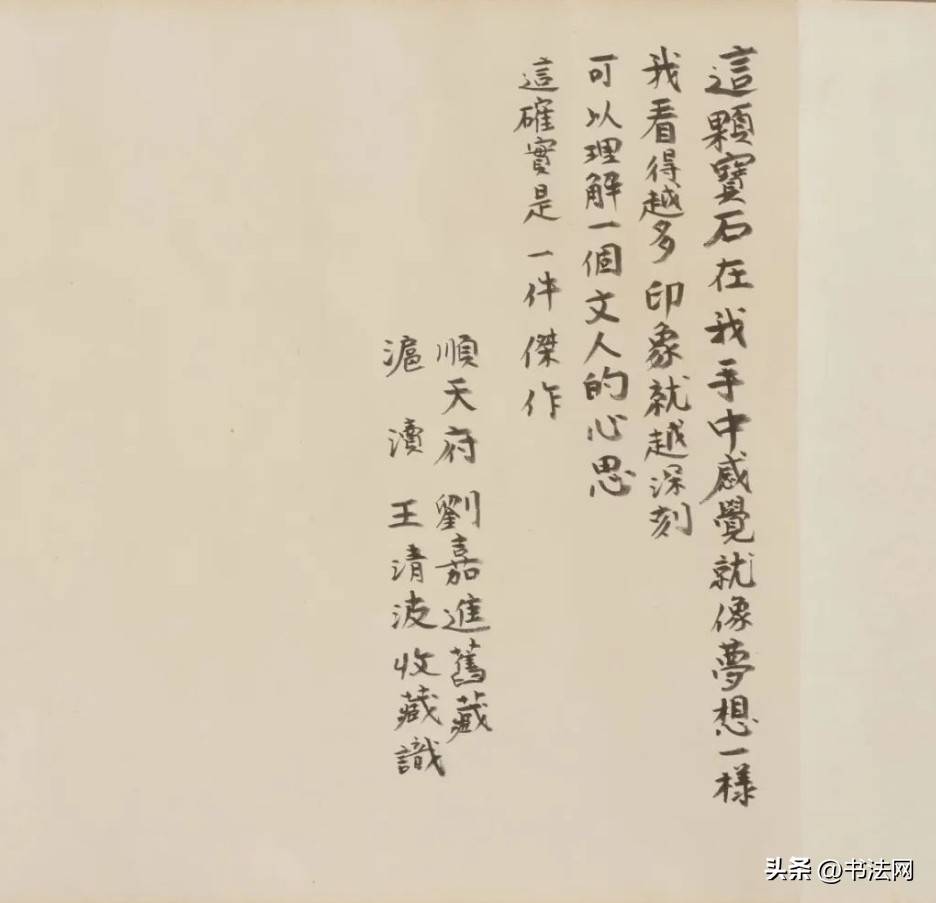 這顆寶石在我手中感覺就像夢想一樣
我看得越多印象就越深刻
可以理解一個文人的心思
這確實是一件傑作
順天府劉嘉進舊藏
滬瀆王清波收藏識
头条 @书法网